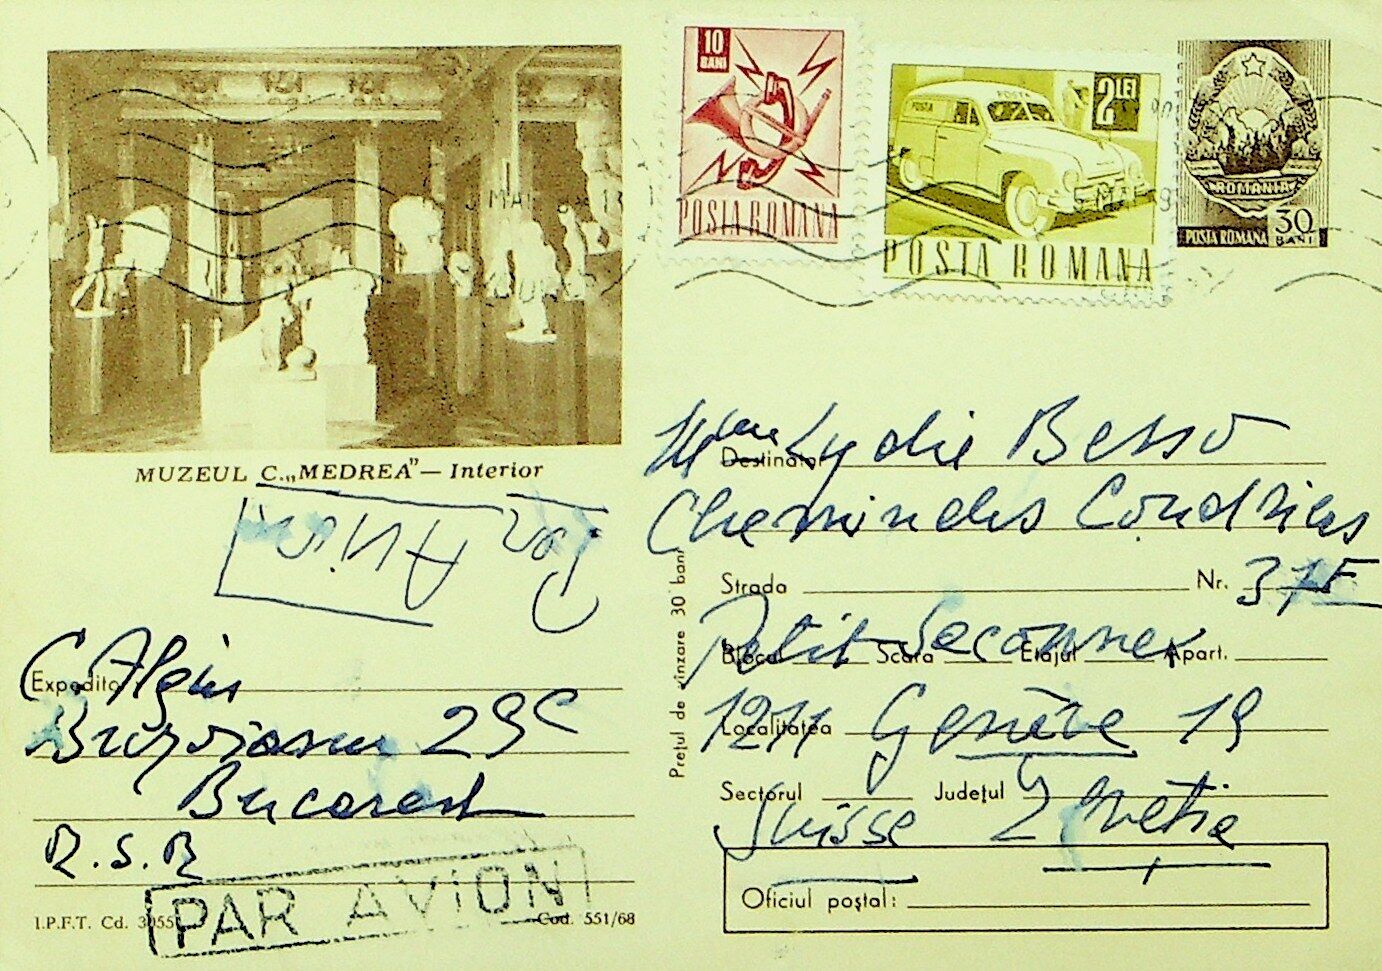 10
BANI
POSTA ROMANA
POSTA
POSTA
2 LEI
POSTA ROMANA
ROMANIA
POSTA ROMANA 30
BANI
MUZEUL C. „MEDREA" — Interior
Par Avion
Expeditor
C. Algiu
29C
Bucarest
R.S.R
PAR AVION
I.P.F.T. Cd.
Cod. 551/68
Prețul de vînzare 30 bani
Destinatar
Mme Lydie Besso
Chemin des
Strada Nr. 31E
Blocul Scara Etajul Apart.
Petit Saconnex
Localitatea
1211 Genève 19
Sectorul Județul
Suisse
Oficiul poștal: